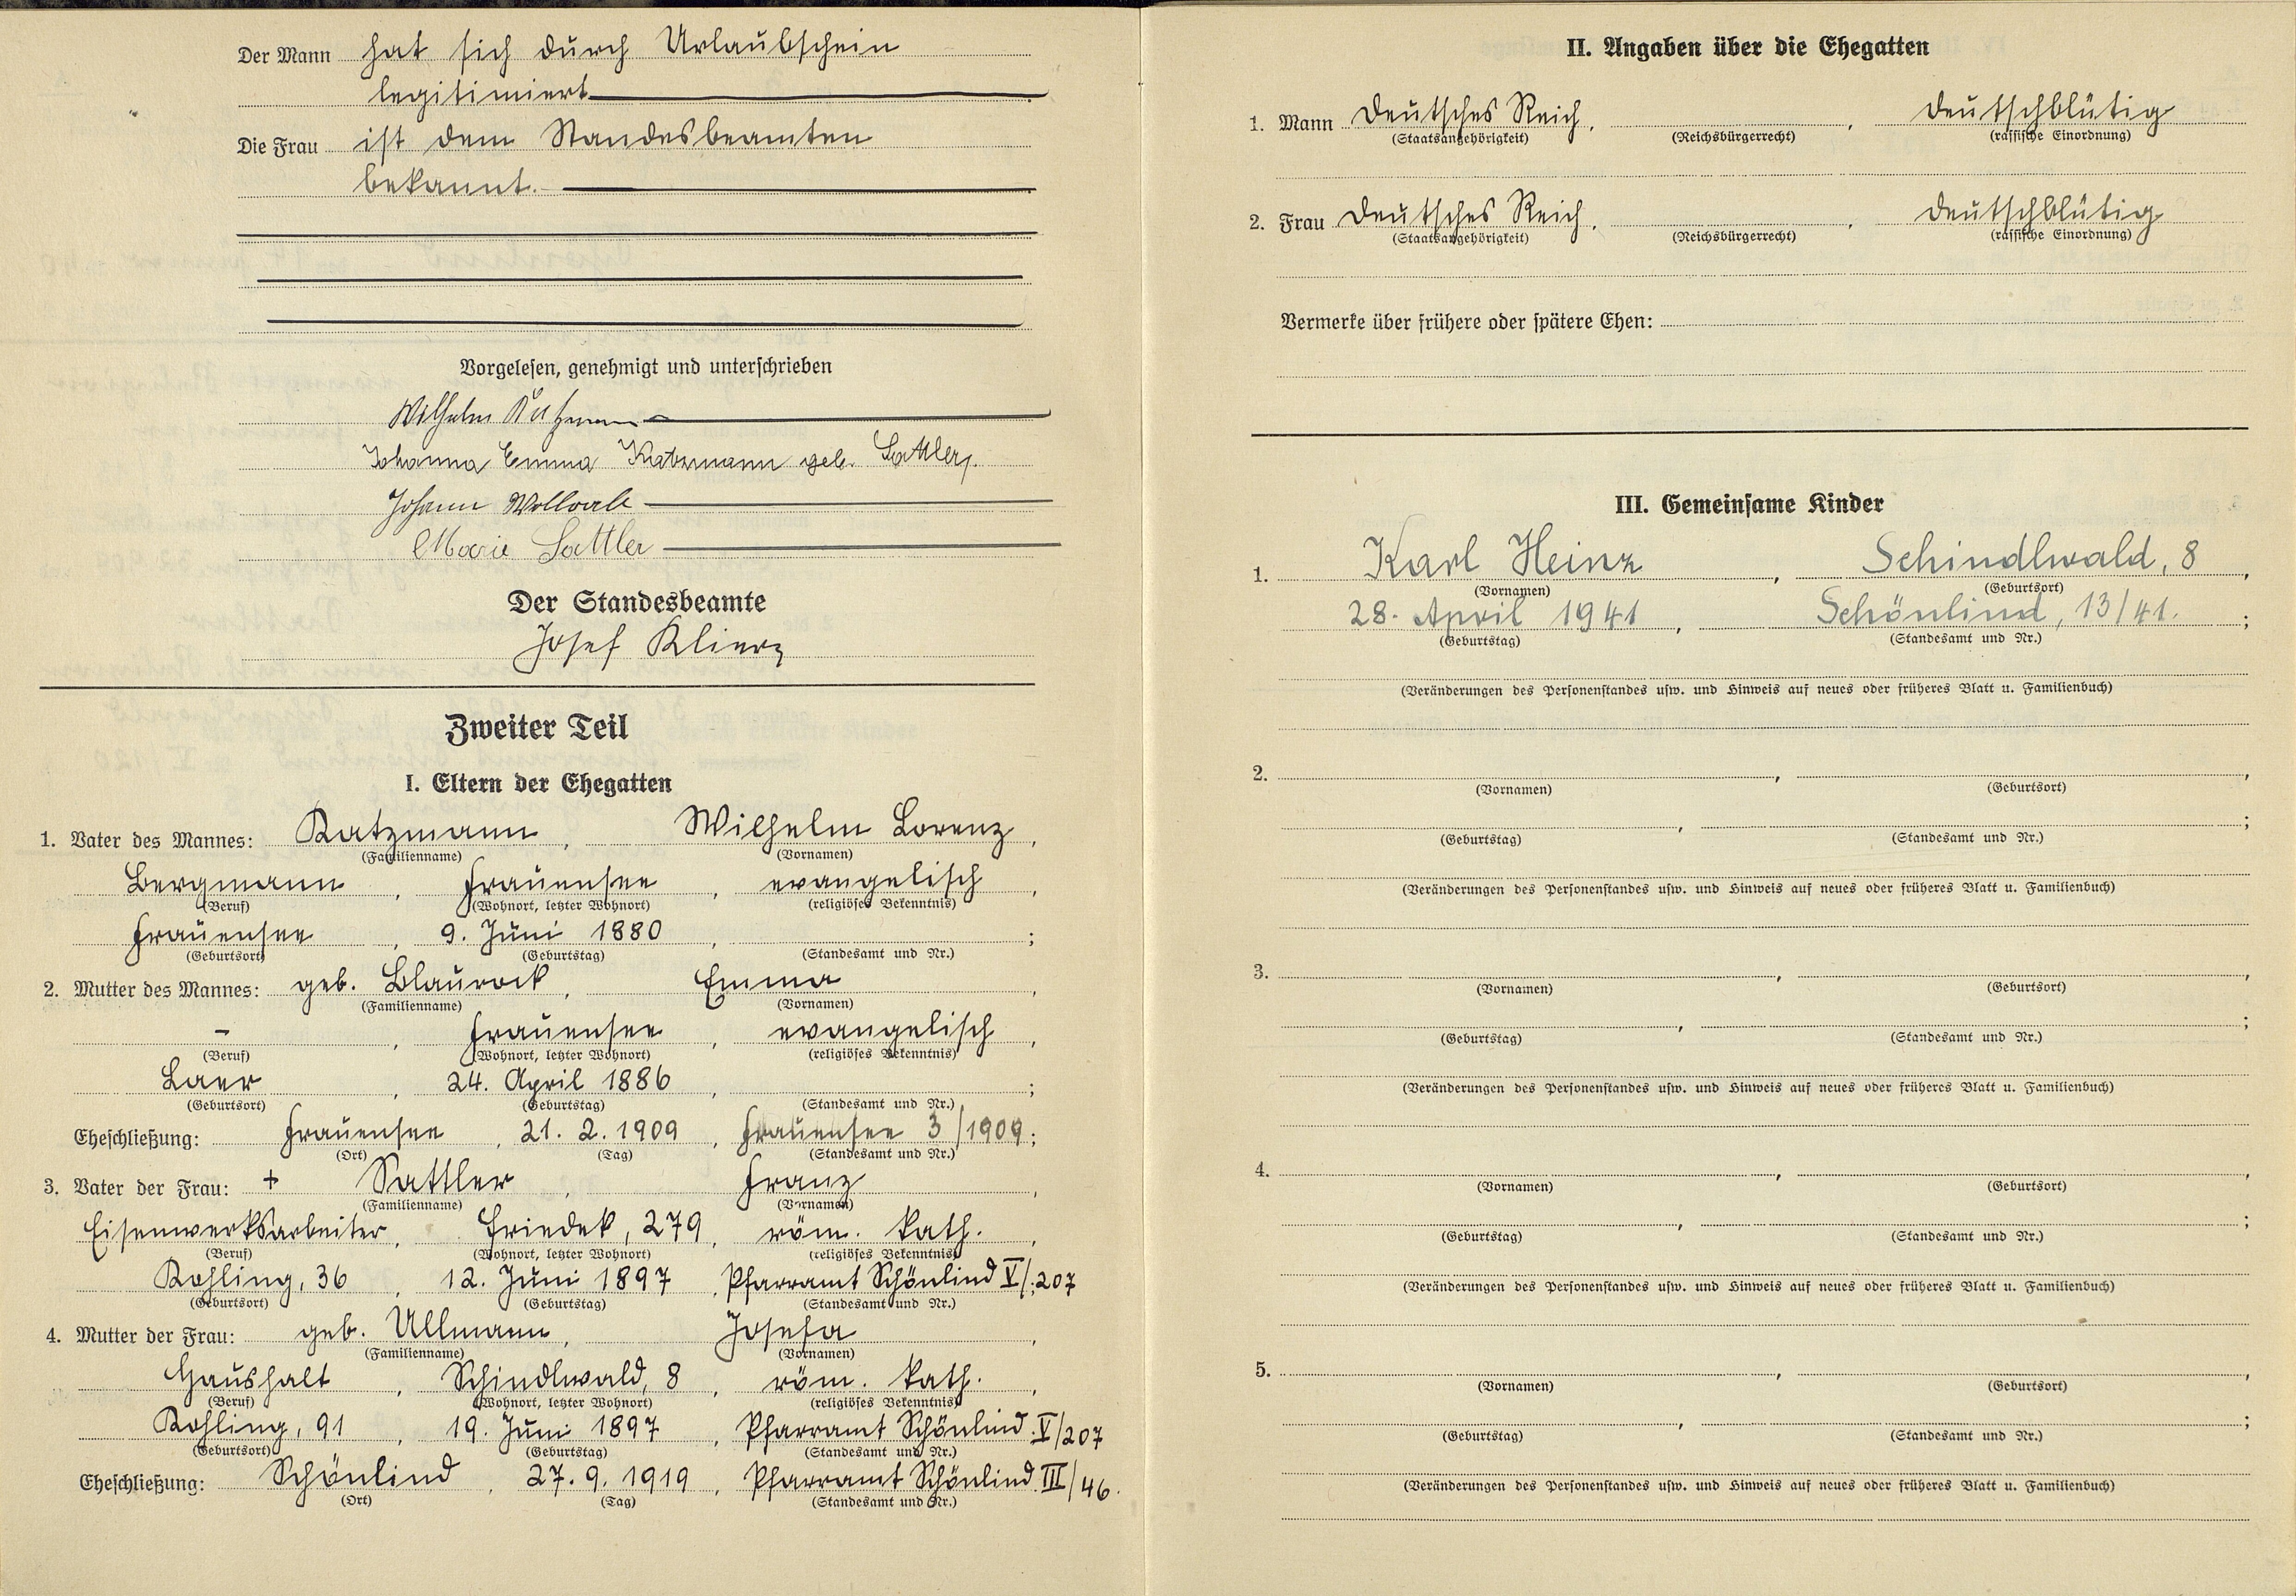 Der Mann hat sich durch Urlaubschein
legitimiert
Die Frau ist dem Standesbeamten
bekannt.
Vorgelesen, genehmigt und unterschrieben
Wilhelm
Johanna Emma Katzmann geb. Sattler.
Johann
Marie Sattler
Der Standesbeamte
Josef Klier
Zweiter Teil
I. Eltern der Ehegatten
1. Vater des Mannes: Katzmann, Wilhelm Lorenz,
(Familienname) (Vornamen)
Bergmann, Frauensee, evangelisch,
(Beruf) (Wohnort, letzter Wohnort) (religiöses Bekenntnis)
Frauensee, 9. Juni 1880, ;
(Geburtsort) (Geburtstag) (Standesamt und Nr.)
2. Mutter des Mannes: geb. Blaurock, Emma,
(Familienname) (Vornamen)
-, Frauensee, evangelisch,
(Beruf) (Wohnort, letzter Wohnort) (religiöses Bekenntnis)
Laer, 24. April 1886, ;
(Geburtsort) (Geburtstag) (Standesamt und Nr.)
Eheschließung: Frauensee, 21. 2. 1909, Frauensee 3/1909;
(Ort) (Tag) (Standesamt und Nr.)
3. Vater der Frau: + Sattler, Franz,
(Familienname) (Vornamen)
Eisenwerksarbeiter, Friedek, 279, röm. kath.,
(Beruf) (Wohnort, letzter Wohnort) (religiöses Bekenntnis)
Kohling, 36, 12. Juni 1897, Pfarramt Schönlind V/;207
(Geburtsort) (Geburtstag) (Standesamt und Nr.)
4. Mutter der Frau: geb. Ullmann, Josefa,
(Familienname) (Vornamen)
Haushalt, Schindlwald, 8, röm. kath.,
(Beruf) (Wohnort, letzter Wohnort) (religiöses Bekenntnis)
Kohling, 91, 19. Juni 1897, Pfarramt Schönlind V/207
(Geburtsort) (Geburtstag) (Standesamt und Nr.)
Eheschließung: Schönlind, 27. 9. 1919, Pfarramt Schönlind III/46.
(Ort) (Tag) (Standesamt und Nr.)
II. Angaben über die Ehegatten
1. Mann Deutsches Reich, , deutschblütig
(Staatsangehörigkeit) (Reichsbürgerrecht) (rassische Einordnung)
2. Frau Deutsches Reich, , deutschblütig
(Staatsangehörigkeit) (Reichsbürgerrecht) (rassische Einordnung)
Vermerke über frühere oder spätere Ehen:
III. Gemeinsame Kinder
1. Karl Heinz, Schindlwald, 8,
(Vornamen) (Geburtsort)
28. April 1941, Schönlind, 13/41. ;
(Geburtstag) (Standesamt und Nr.)
(Veränderungen des Personenstandes usw. und Hinweis auf neues oder früheres Blatt u. Familienbuch)
2. , ,
(Vornamen) (Geburtsort)
, ;
(Geburtstag) (Standesamt und Nr.)
(Veränderungen des Personenstandes usw. und Hinweis auf neues oder früheres Blatt u. Familienbuch)
3. , ,
(Vornamen) (Geburtsort)
, ;
(Geburtstag) (Standesamt und Nr.)
(Veränderungen des Personenstandes usw. und Hinweis auf neues oder früheres Blatt u. Familienbuch)
4. , ,
(Vornamen) (Geburtsort)
, ;
(Geburtstag) (Standesamt und Nr.)
(Veränderungen des Personenstandes usw. und Hinweis auf neues oder früheres Blatt u. Familienbuch)
5. , ,
(Vornamen) (Geburtsort)
, ;
(Geburtstag) (Standesamt und Nr.)
(Veränderungen des Personenstandes usw. und Hinweis auf neues oder früheres Blatt u. Familienbuch)